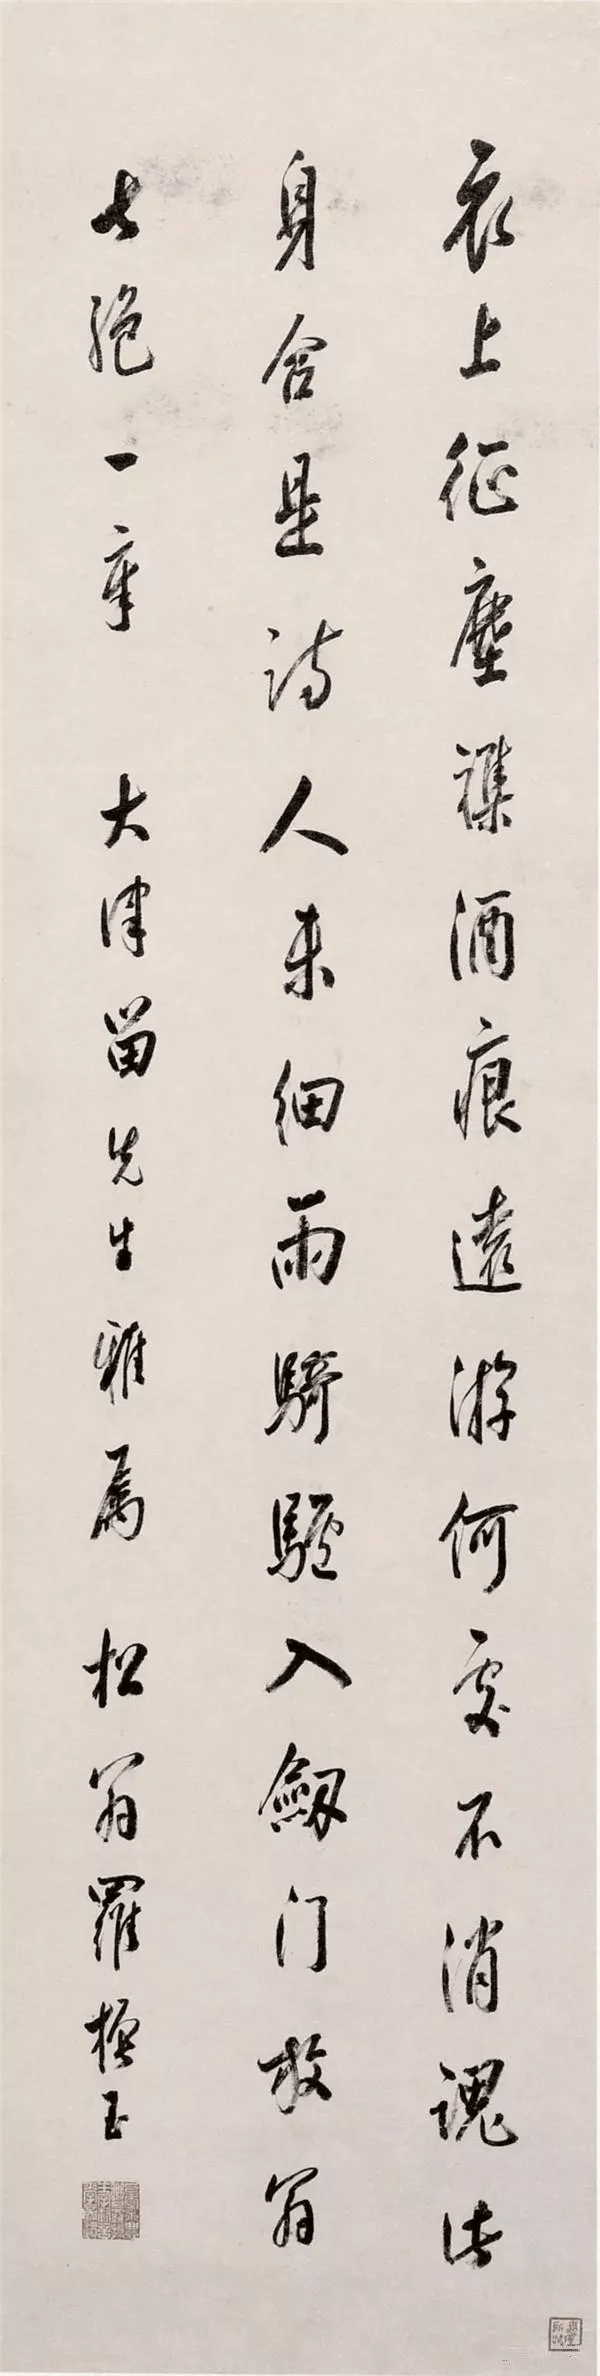 衣上征塵襍酒痕遠游何處不消魂此
身合是詩人未細雨騎驢入劒門放翁
七絕一章 大津留先生雅属 松翁羅振玉